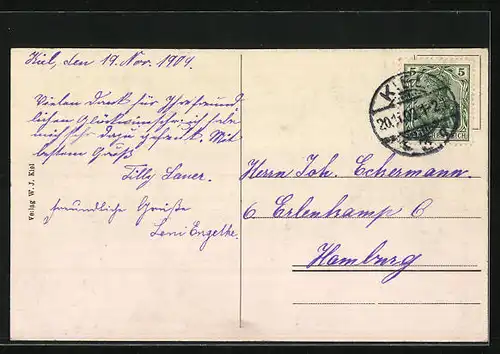 Kiel, den 19. Nov. 1909.
Vielen Dank für Ihre freund-
lichen Glückwunsch ich habe
mich sehr dazu gefreut. Mit
bestem Gruß
Tilly Lauer.
freundliche Grüße
Leni Engelke.
Verlag W. J. Kiel
5 5
KIEL
20.11.
Herrn Joh. Echermann
6. Erlenkamp 6
Hamburg